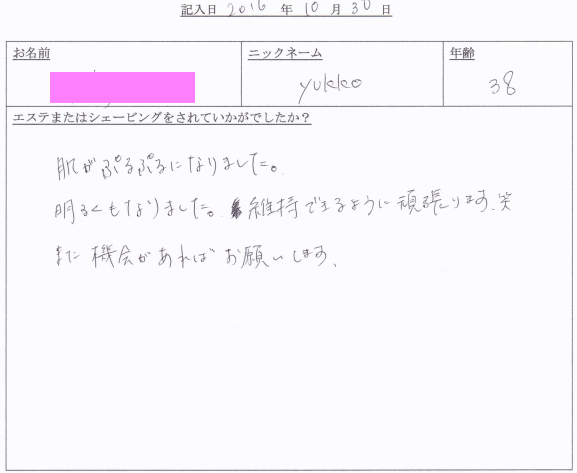 記入日 2016 年 10 月 30 日
お名前 ニックネーム 年齢
yukko 38
エステまたはシェービングをされていかがでしたか？
肌がぷるぷるになりました。
明るくもなりました。維持できるように頑張ります、笑
また機会があればお願いします、